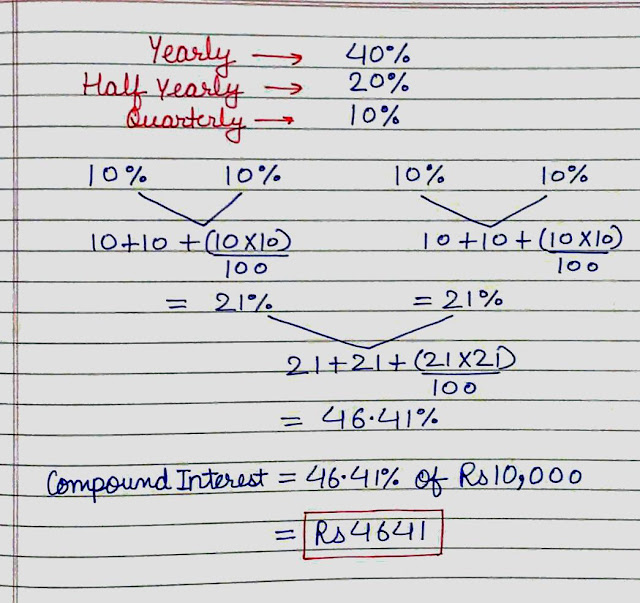 Yearly → 40%
Half Yearly → 20%
Quarterly → 10%
10% 10% 10% 10%
10+10+(10×10)/100 10+10+(10×10)/100
= 21% = 21%
21+21+(21×21)/100
= 46.41%
Compound Interest = 46.41% of Rs10,000
= Rs4641